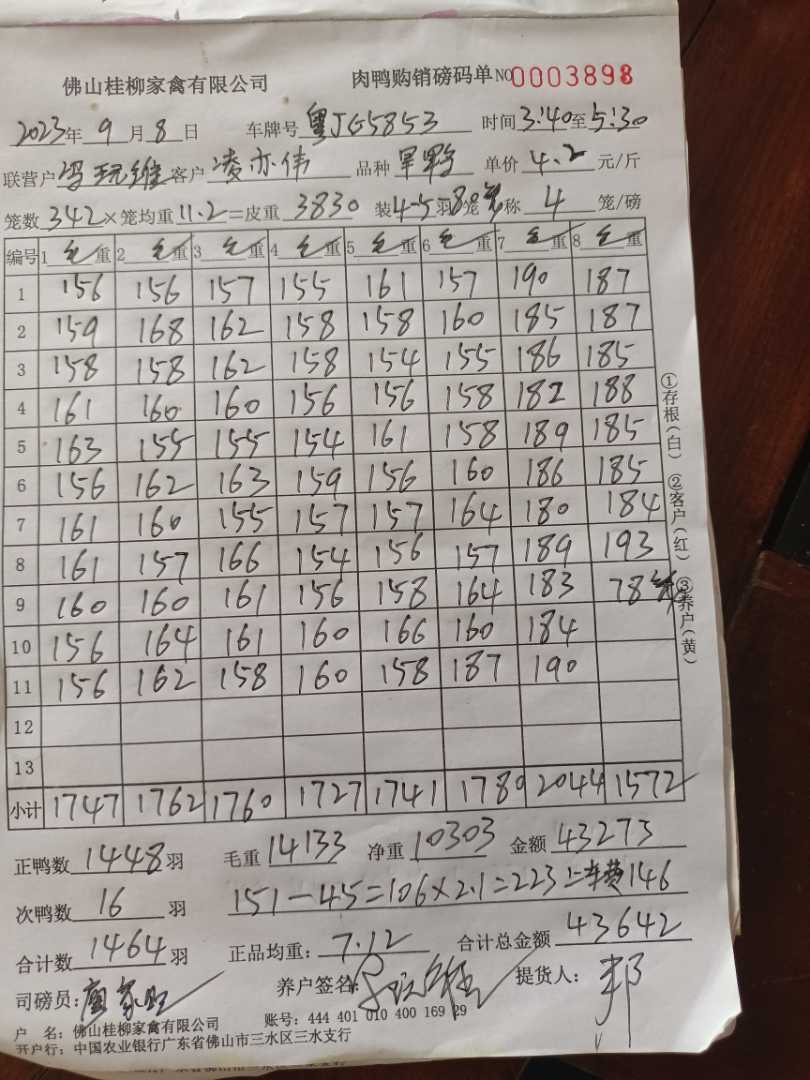 佛山桂柳家禽有限公司 肉鸭购销磅码单 NO 0003898
2023年9月8日 车牌号 粤JG5853 时间3:40至5:30
联营户 冯玩维 客户 凌亦伟 品种 单价4.2元/斤
笼数342×笼均重11.2=皮重3830 装4-5羽 笼 称4笼/磅
编号 1毛重 2毛重 3毛重 4毛重 5毛重 6毛重 7毛重 8毛重
1 156 156 157 155 161 157 190 187
2 159 168 162 158 158 160 185 187
3 158 158 162 158 154 155 186 185
4 161 160 160 156 156 158 182 188
5 163 155 155 154 161 158 189 185
6 156 162 163 159 156 160 186 185
7 161 160 155 157 157 164 180 184
8 161 157 166 154 156 157 189 193
9 160 160 161 156 158 164 183 78
10 156 164 161 160 166 160 184
11 156 162 158 160 158 187 190
12
13
小计 1747 1762 1760 1727 1741 1780 2044 1572
正鸭数1448羽 毛重14133 净重10303 金额43273
次鸭数16羽 151-45=106×2.1=223 车费146
合计数1464羽 正品均重:7.12 合计总金额43642
司磅员: 养户签名: 提货人:
户 名:佛山桂柳家禽有限公司 账号:444 401 010 400 169 29
开户行:中国农业银行广东省佛山市三水区三水支行
①存根(白) ②客户(红) ③养户(黄)